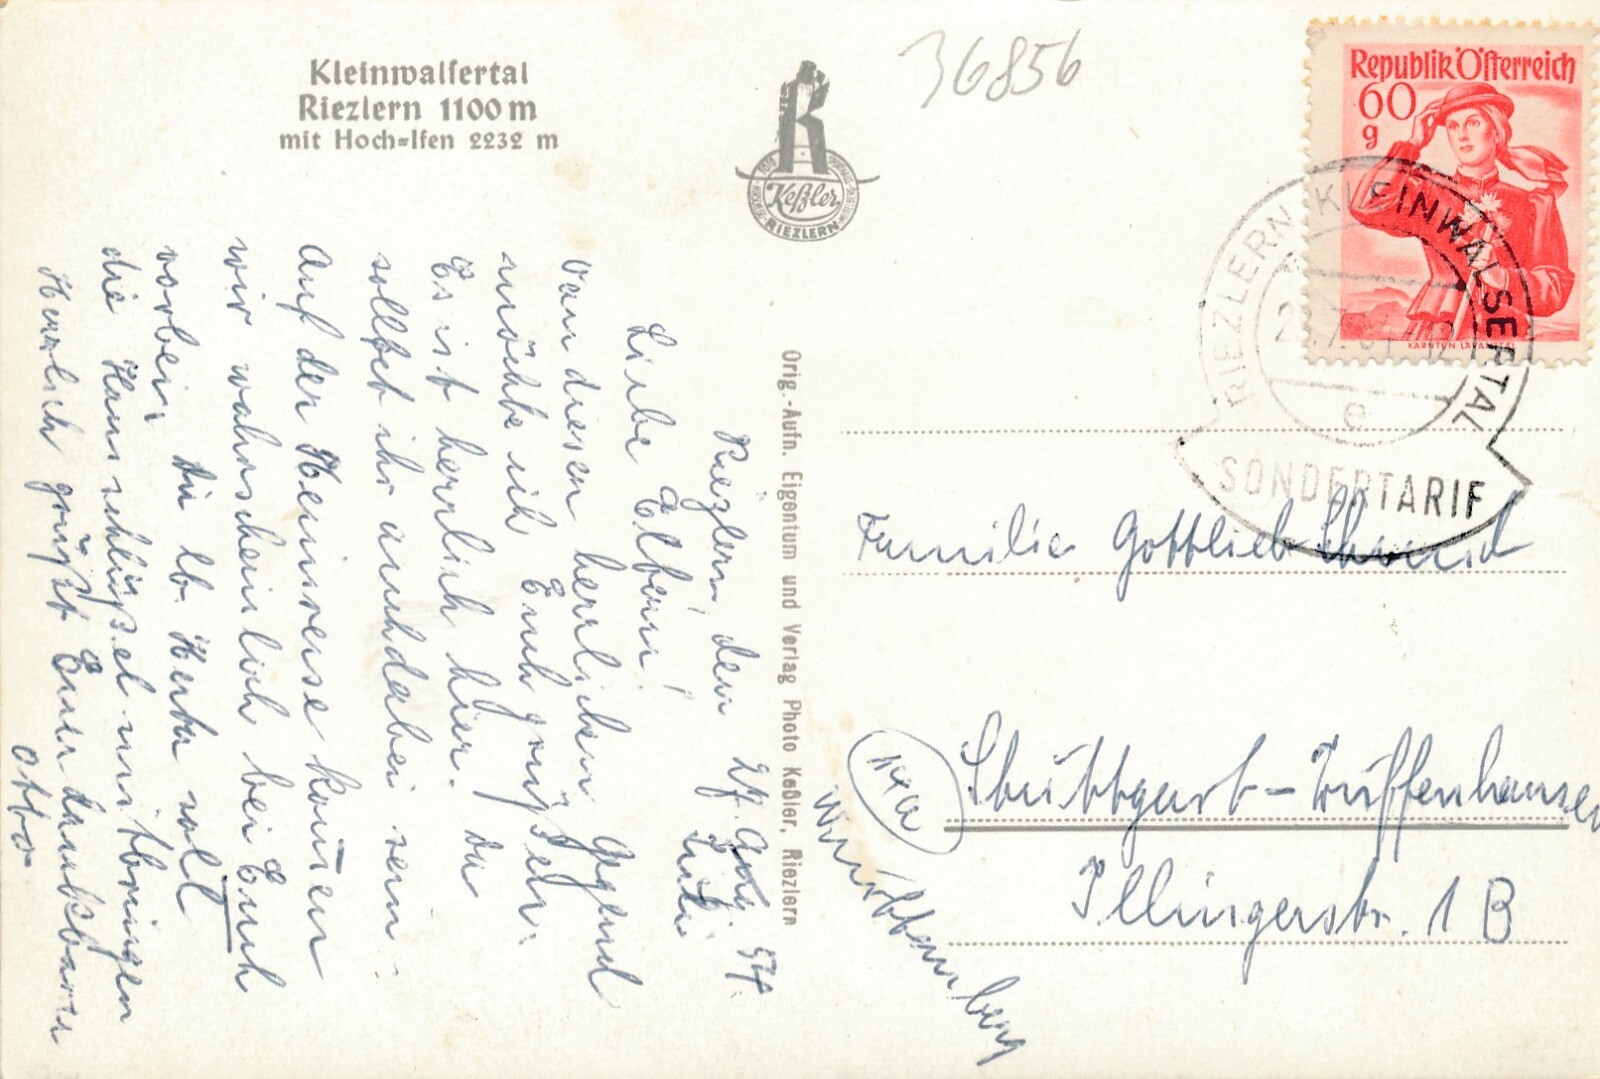 Kleinwalsertal
Riezlern 1100 m
mit Hoch-Ifen 2232 m
36856
R
Keßler
RIEZLERN
Republik Österreich
60
g
KÄRNTEN LAVANTTAL
RIEZLERN KLEINWALSERTAL
e
SONDERTARIF
Orig.-Aufn. Eigentum und Verlag Photo Keßler, Riezlern
Riezlern, den 27. Juli 54.
Liebe Eltern!
Von diesen herrlichen Gegend
möchte ich Euch grüßen.
Es ist herrlich hier. Da
solltet ihr auch dabei sein.
Auf der Heimreise kommen
wir wahrscheinlich bei Euch
vorbei, die lb. Herta soll
die Hausschlüssel mitbringen
Herzlich grüßt Euer dankbarer
Otto
Familie Gottlieb Schmid
(14a)
Stuttgart-Zuffenhausen
Illingerstr. 1 B
Württemberg